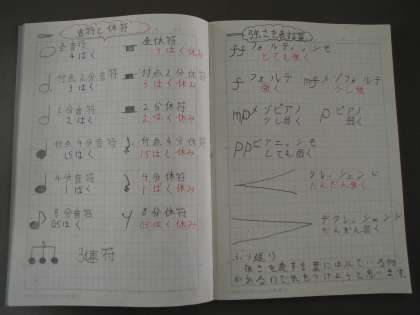 音符と休符
全音符
4はく
全休符
4はく休み
付点2分音符
3はく
付点2分休符
3はく休み
2分音符
2はく
2分休符
2はく休み
付点4分音符
1.5はく
付点4分休符
1.5はく休み
4分音符
1はく
4分休符
1はく休み
8分音符
0.5はく
8分休符
0.5はく休み
3連符
強さを表す記号
ff フォルティッシモ
とても強く
f フォルテ
強く
mf メゾフォルテ
少し強く
mp メゾピアノ
少し弱く
p ピアノ
弱く
pp ピアニッシモ
とても弱く
クレッシェンド
だんだん強く
デクレッシェンド
だんだん弱く
ふり返り
強さを表す言葉には似ている物
があるので気をつけようと思います。